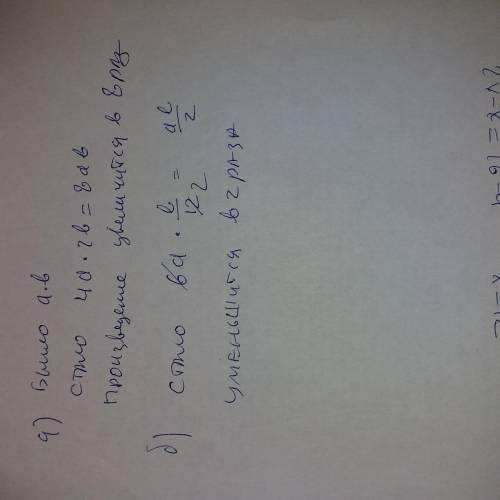 а) Было а·в
стало 4а·2в=8ав
Произведение увеличится в 8 раз
б) стало 6а · в/12 2 = ав/2
уменьшится в 2 раза